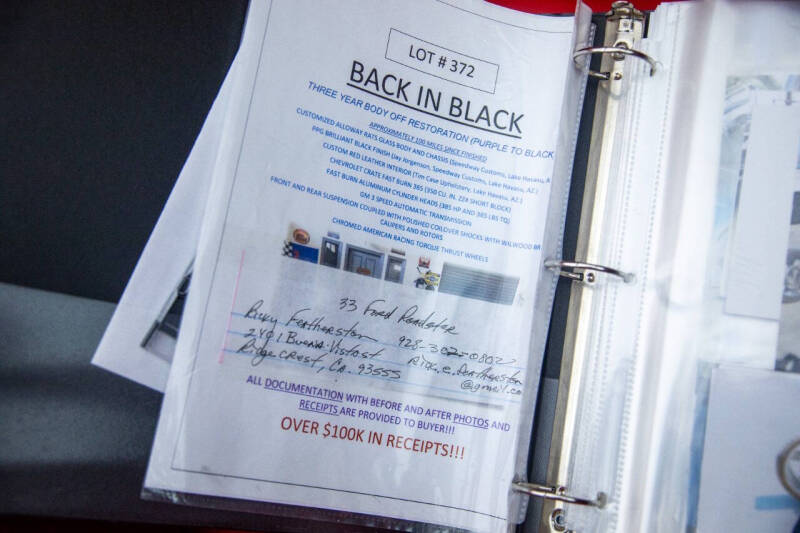 LOT # 372
BACK IN BLACK
THREE YEAR BODY OFF RESTORATION (PURPLE TO BLACK
APPROXIMATELY 100 MILES SINCE FINISHED
CUSTOMIZED ALLOWAY RATS GLASS BODY AND CHASSIS (Speedway Customs, Lake Havana, A
PPG BRILLIANT BLACK FINISH (Jay Jorgenson, Speedway Customs, Lake Havana, AZ.)
CUSTOM RED LEATHER INTERIOR (Tim Case Upholstery, Lake Havana, AZ.)
CHEVROLET CRATE FAST BURN 385 (350 CU. IN. ZZ4 SHORT BLOCK)
FAST BURN ALUMINUM CYLINDER HEADS (385 HP AND 385 LBS TQ)
GM 3 SPEED AUTOMATIC TRANSMISSION
FRONT AND REAR SUSPENSION COUPLED WITH POLISHED COILOVER SHOCKS WITH WILWOOD BR
CALIPERS AND ROTORS
CHROMED AMERICAN RACING TORQUE THRUST WHEELS
33 Ford Roadster
Ricky Featherston 928-302-0802
2401 Buena Vista St Ridg.e.
Ridgecrest, Ca. 93555 @gmail.co
ALL DOCUMENTATION WITH BEFORE AND AFTER PHOTOS AND
RECEIPTS ARE PROVIDED TO BUYER!!!
OVER $100K IN RECEIPTS!!!